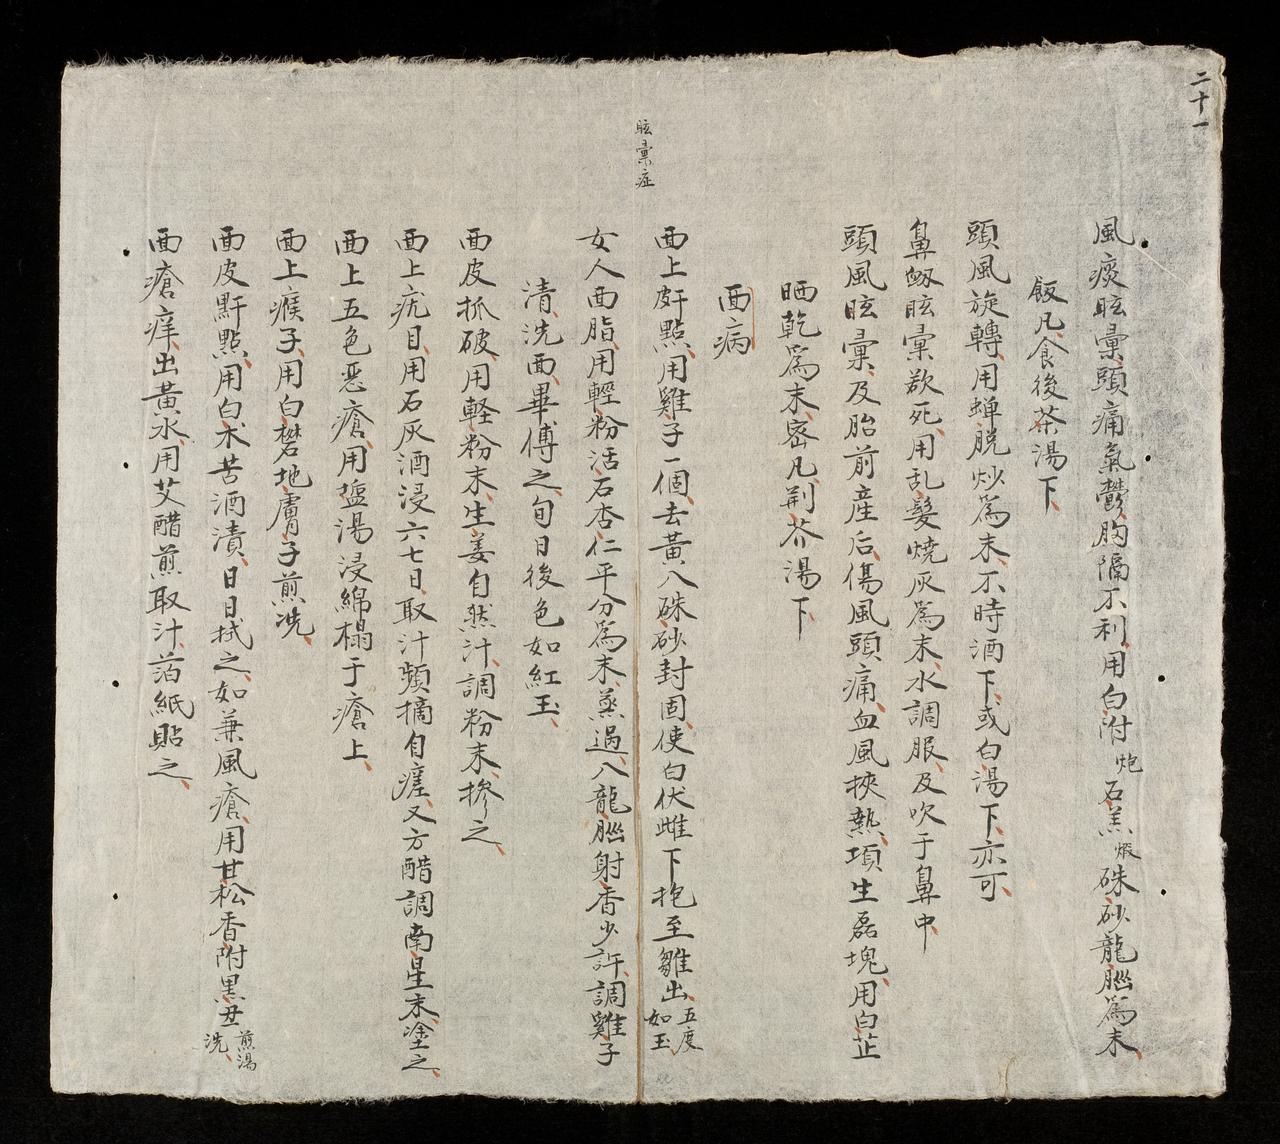 二十一
風痰眩暈頭痛氣鬱胸隔不利用白附炮石羔煆硃砂龍腦爲末
飯凡食後茶湯下
頭風旋轉用蝉脱炒爲末不時酒下或白湯下亦可
鼻衂眩暈欲死用乱髮燒灰爲末水調服及吹于鼻中
頭風眩暈及胎前産后傷風頭痛血風挾熱項生磊塊用白芷
晒乾爲末密凡荆芥湯下
面病
眩暈症
面上皯點用雞子一個去黃入硃砂封固使白伏雌下抱至雛出五度如玉
女人面脂用輕粉活石杏仁平分爲末蒸過入龍腦射香少許調雞子
清洗面畢傅之旬日後色如紅玉
面皮抓破用軽粉末生姜自然汁調粉末摻之
面上疣目用石灰酒浸六七日取汁頻摘自瘥又方醋調南星末塗之
面上五色恶瘡用塩湯浸綿榻于瘡上
面上瘊子用白礬地膚子煎洗
面皮䵟點用白术苦酒漬日日拭之如兼風瘡用甘松香附黑丑煎湯洗
面瘡痒出黃水用艾醋煎取汁萡紙貼之